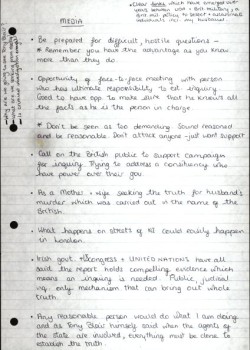 MEDIA
• Be prepared for difficult, hostile questions -
* Remember you have the advantage as you know
more than they do.
• Opportunity of face-to-face meeting with person
who has ultimate responsibility to est. inquiry.
Good to have opp. to make sure that he knows all
the facts as he is the person in charge
* Don't be seen as too demanding. Sound reasoned
and be reasonable. Don't attack anyone - just want support
• Call on the British public to support campaign
for inquiry. Trying to address a constituency who
have power over their gov.
• As a Mother + wife seeking the truth for husband's
murder which was carried out in the name of the
British.
• What happens on streets of NI could easily happen
in London.
• Irish govt. + Congress + UNITED NATIONS have all
said the report holds compelling evidence which
means an inquiry is needed. Public, judicial
inq. only mechanism that can bring out whole
truth.
• Any reasonable person would do what I am doing
and as Tony Blair himself said when the agents of
the state are involved, everything must be done to
establish the truth.